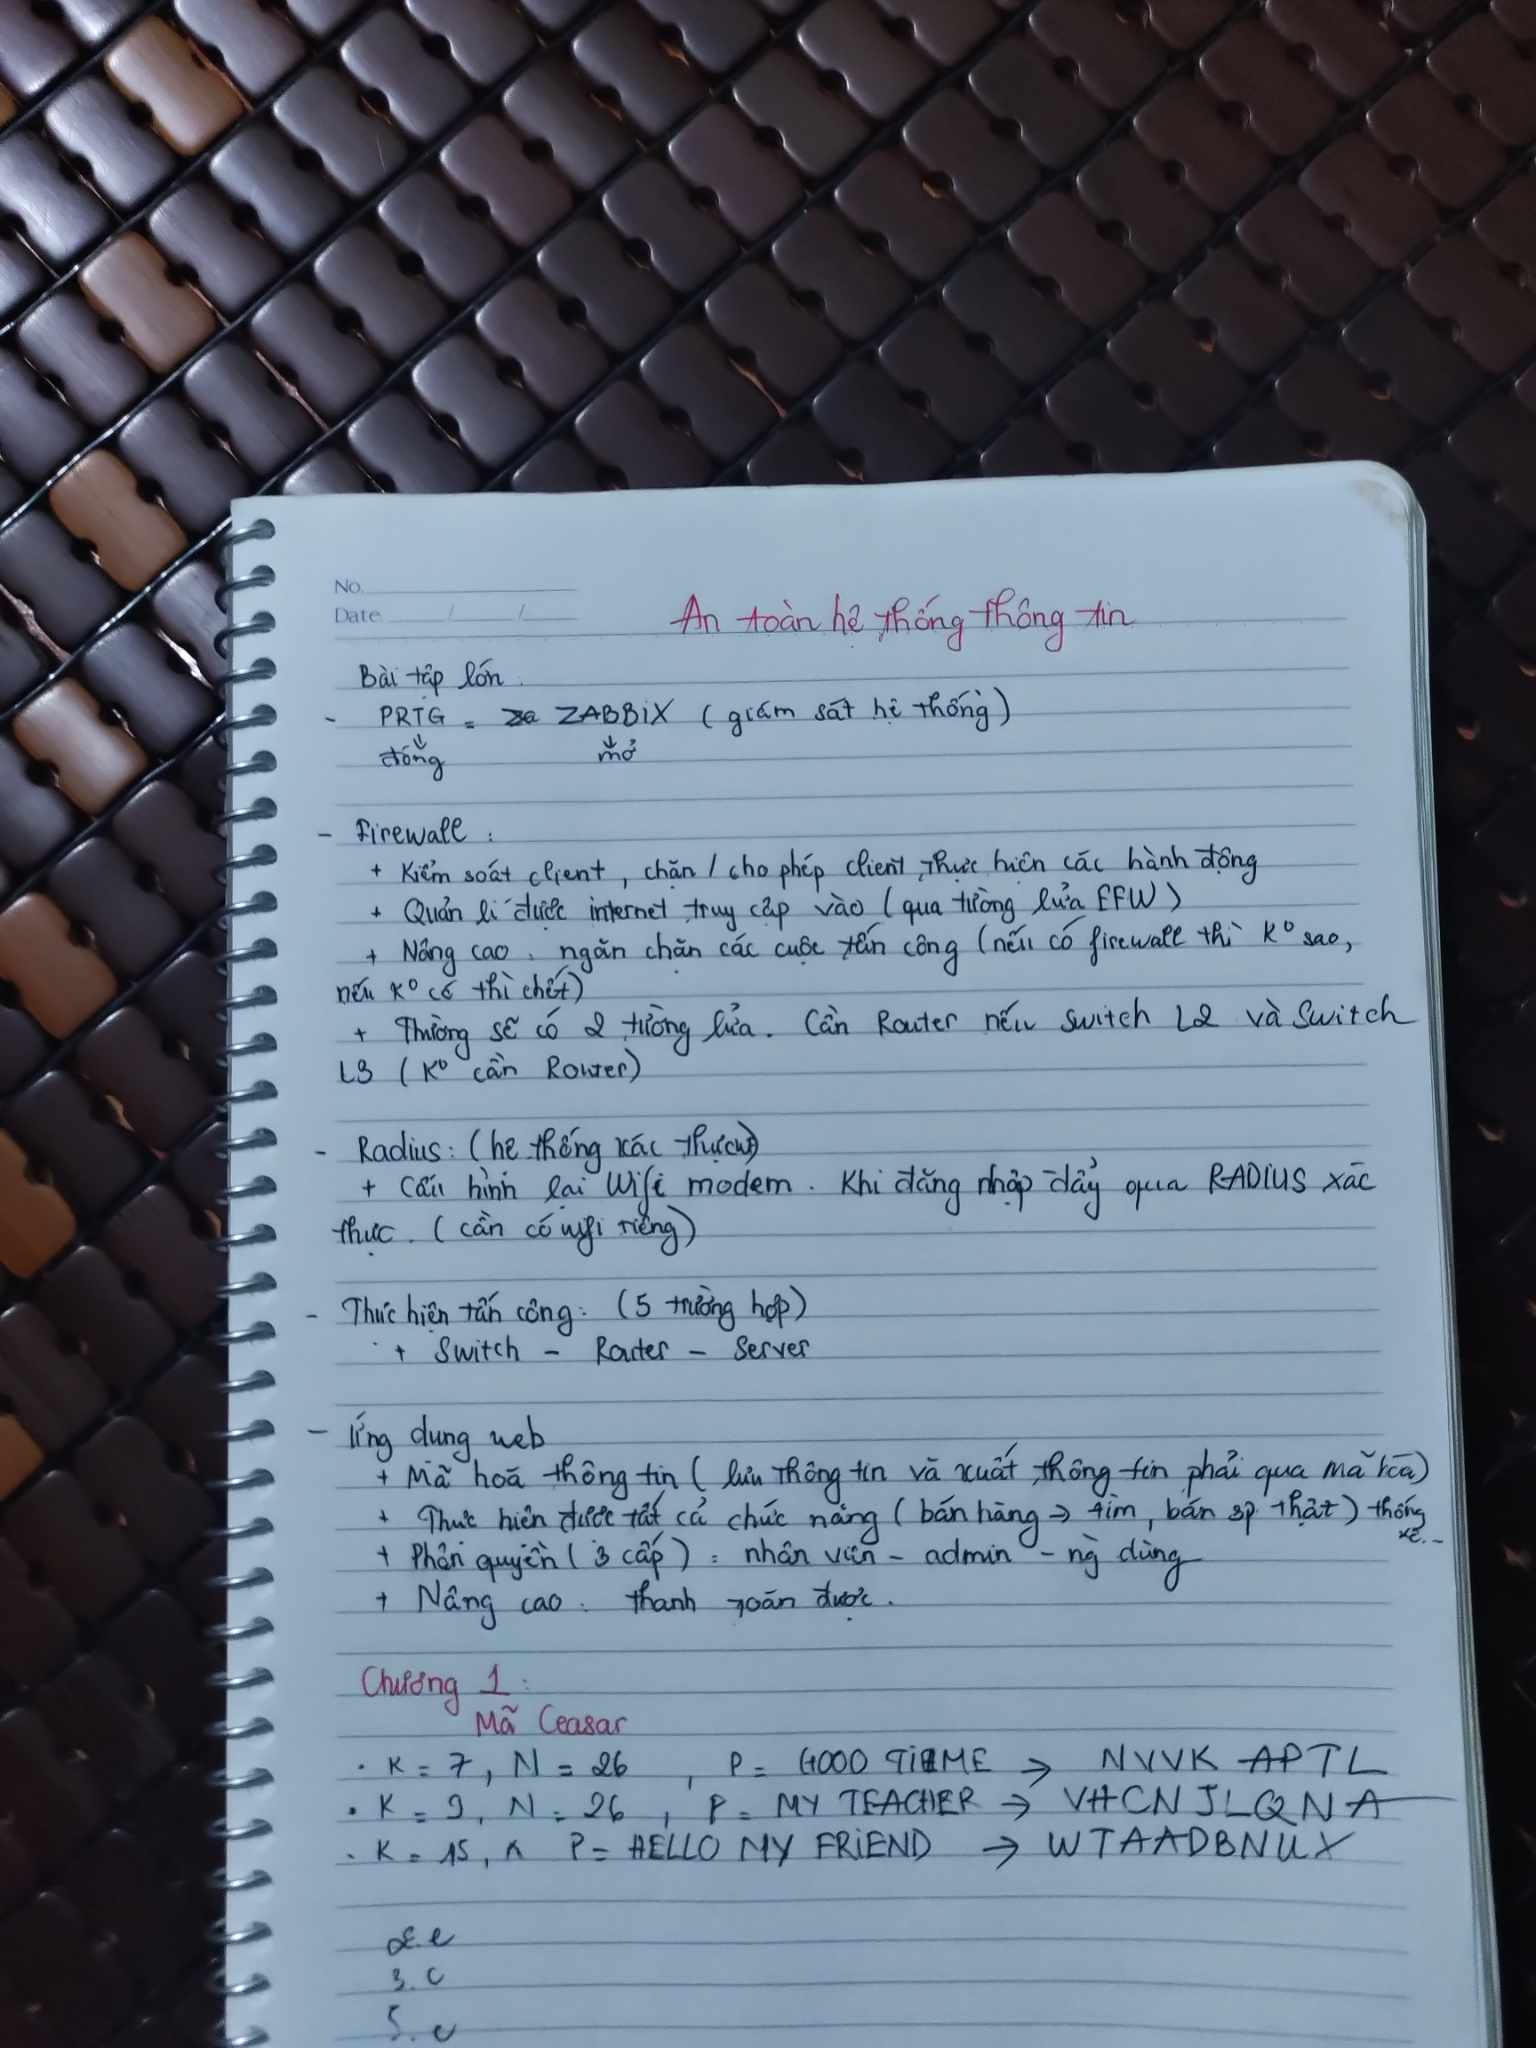 No.
Date / /
An toàn hệ thống thông tin
Bài tập lớn:
- PRTG = ZABBIX (giám sát hệ thống)
đóng mở
- Firewall:
+ Kiểm soát client, chặn / cho phép client thực hiện các hành động
+ Quản lí được internet truy cập vào (qua tường lửa FFW)
+ Nâng cao: ngăn chặn các cuộc tấn công (nếu có firewall thì K⁰ sao,
nếu K⁰ có thì chết)
+ Thường sẽ có 2 tường lửa. Cần Router nếu Switch L2 và Switch
L3 (K⁰ cần Router)
- Radius: (hệ thống xác thực)
+ Cấu hình lại Wifi modem. Khi đăng nhập đẩy qua RADIUS xác
thực. (cần có wifi riêng)
- Thực hiện tấn công: (5 trường hợp)
+ Switch - Router - Server
- Ứng dụng web
+ Mã hoá thông tin (lưu thông tin và xuất thông tin phải qua mã hóa)
+ Thực hiện được tất cả chức năng (bán hàng → tìm, bán sp thật) thống
kê...
+ Phân quyền (3 cấp): nhân viên - admin - ng dùng
+ Nâng cao: thanh toán được.
Chương 1:
Mã Ceasar
• K = 7, N = 26, P = GOOD TIME → NVVK APTL
• K = 9, N = 26, P = MY TEACHER → VHCNJLQNA
• K = 15, P = HELLO MY FRIEND → WTAADBNUX
3. C
5. c